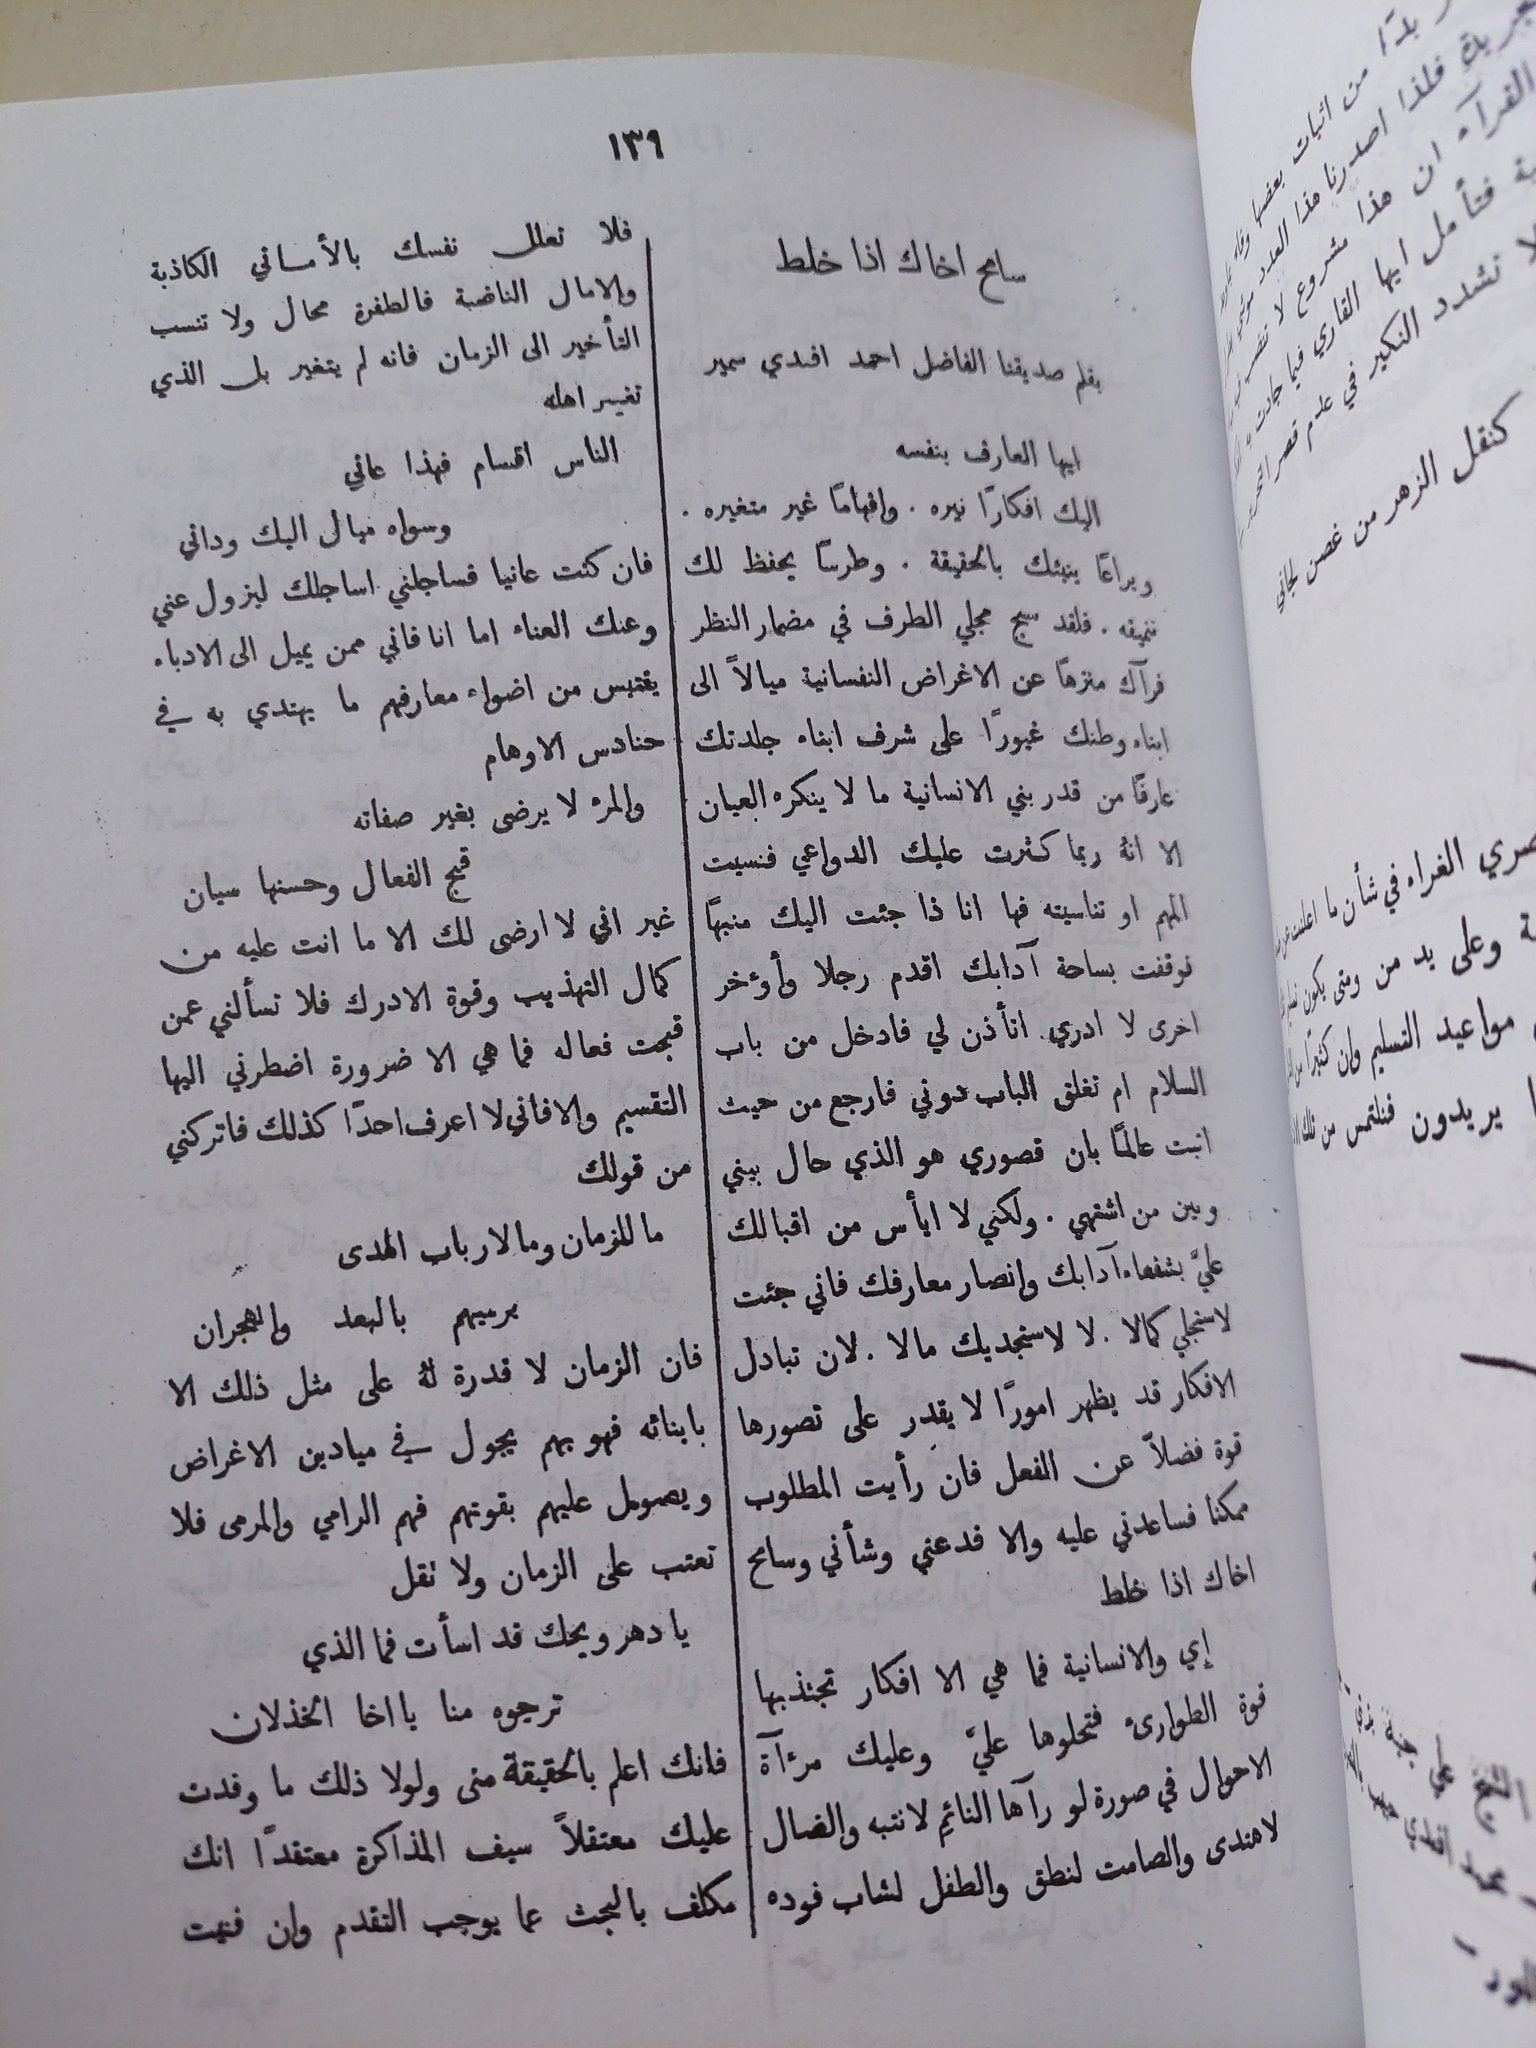 ١٣٩
سامح اخاك اذا خلط
بقلم صديقنا الفاضل احمد افندي سمير
ايها العارف بنفسه
اليك افكارًا نيره . وافهامًا غير متغيره .
ويراعًا ينبئك بالحقيقة . وطرسًا يحفظ لك
تنميقه . فلقد سبح مجلي الطرف في مضمار النظر
فرآك منزهًا عن الاغراض النفسانية ميالاً الى
ابناء وطنك غيورًا على شرف ابناء جلدتك
عارفًا من قدر بني الانسانية ما لا ينكره العيان
الا انهُ ربما كثرت عليك الدواعي فنسيت
المهم او تناسيته فها انا ذا جئت اليك منبهًا
فوقفت بساحة آدابك اقدم رجلا وأؤخر
اخرى لا ادري أتأذن لي فادخل من باب
السلام ام تغلق الباب دوني فارجع من حيث
اتيت عالمًا بان قصوري هو الذي حال بيني
وبين من اشتهي . ولكني لا ايأس من اقبالك
عليَّ بشفعاء آدابك وانصار معارفك فاني جئت
لاستجلي كمالا . لا لاستجديك مالا . لان تبادل
الافكار قد يظهر امورًا لا يقدر على تصورها
قوة فضلاً عن الفعل فان رأيت المطلوب
ممكنا فساعدني عليه والا فدعني وشأني وسامح
اخاك اذا خلط
إي والانسانية فما هي الا افكار تجتذبها
قوة الطوارئ فتجلوها عليَّ وعليك مرءآة
الاحوال في صورة لو رآها النائم لانتبه والضال
لاهتدى والصامت لنطق والطفل لشاب فوده
فلا تعلل نفسك بالأماني الكاذبة
والامال الناضبة فالطفرة محال ولا تنسب
التأخير الى الزمان فانه لم يتغير بل الذي
تغير اهله
الناس اقسام فهذا عاني
وسواه ميال اليك وداني
فان كنت عانيا فساجلني اساجلك ليزول عني
وعنك العناء اما انا فاني ممن يميل الى الادباء
يقتبس من اضواء معارفهم ما يهتدي به في
حنادس الاوهام
والمرء لا يرضى بغير صفاته
قبح الفعال وحسنها سيان
غير اني لا ارضى لك الا ما انت عليه من
كمال التهذيب وقوة الادرك فلا تسألني عمن
قبحت فعاله فما هي الا ضرورة اضطرني اليها
التقسيم والا فاني لا اعرف احدًا كذلك فاتركني
من قولك
ما للزمان وما لارباب الهدى
يرميهم بالبعد والهجران
فان الزمان لا قدرة لهُ على مثل ذلك الا
بابنائه فهو بهم يجول في ميادين الاغراض
ويصول عليهم بقوتهم فهم الرامي والمرمى فلا
تعتب على الزمان ولا نقل
يا دهر ويحك قد اسأت فما الذي
ترجوه منا يا اخا الخذلان
فانك اعلم بالحقيقة منى ولولا ذلك ما وفدت
عليك معتقلاً سيف المذاكرة معتقدًا انك
مكلف بالبحث عما يوجب التقدم وان فنيت
من اثبات بعضها
فلذا اصدرنا هذا العدد
القرآء ان هذا مشروع لا
فتأمل ايها القاري فيما جادت به
لا تشدد النكير في عدم قصر
كنقل الزهر من غصن لجاني
الغراء في شأن ما اعلنت عن
وعلى يد من ومتى يكون
مواعيد التسليم وان كثيرًا من
يريدون فنلتمس من تلك